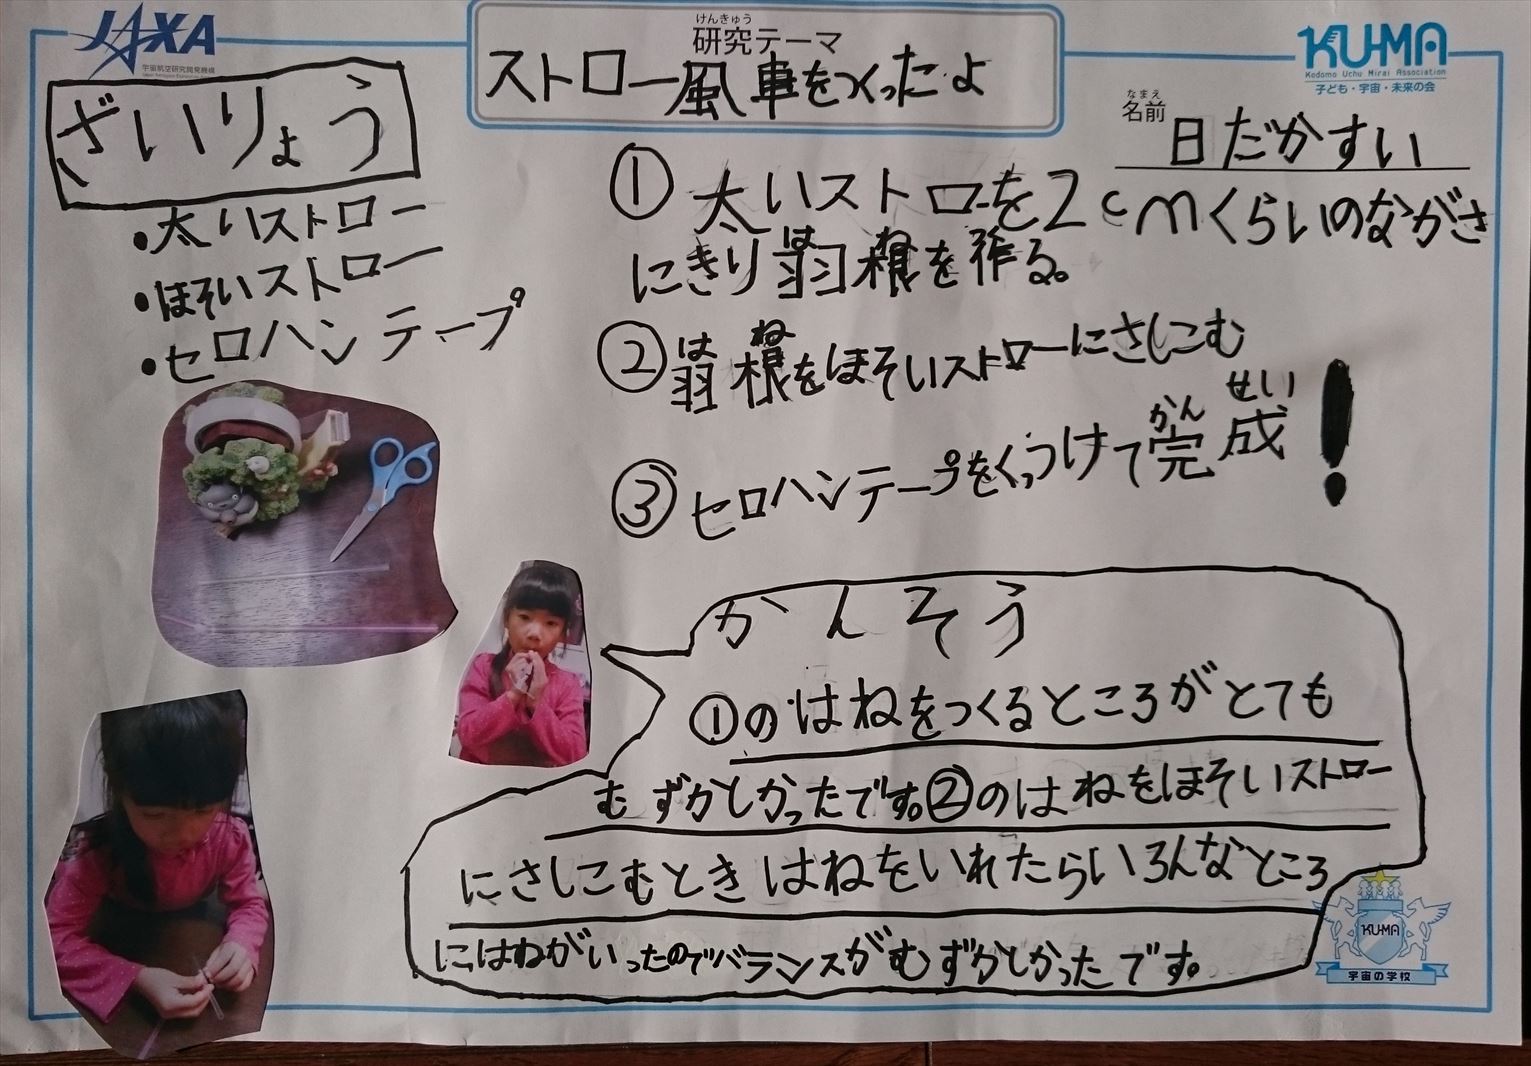 JAXA
宇宙航空研究開発機構
けんきゅう
研究テーマ
ストロー風車をつくったよ
KU-MA
Kodomo Uchu Mirai Association
子ども・宇宙・未来の会
なまえ
名前
日だかすい
ざいりょう
・太いストロー
・ほそいストロー
・セロハンテープ
① 太いストローを2cmくらいのながさ
はね
にきり羽根を作る。
はね
②羽根をほそいストローにさしこむ
かんせい
③セロハンテープをくっつけて完成!
かんそう
①のはねをつくるところがとても
むずかしかったです。②のはねをほそいストロー
にさしこむときはねをいれたらいろんなところ
にはねがいったのでバランスがむずかしかったです。
KU-MA
宇宙の学校